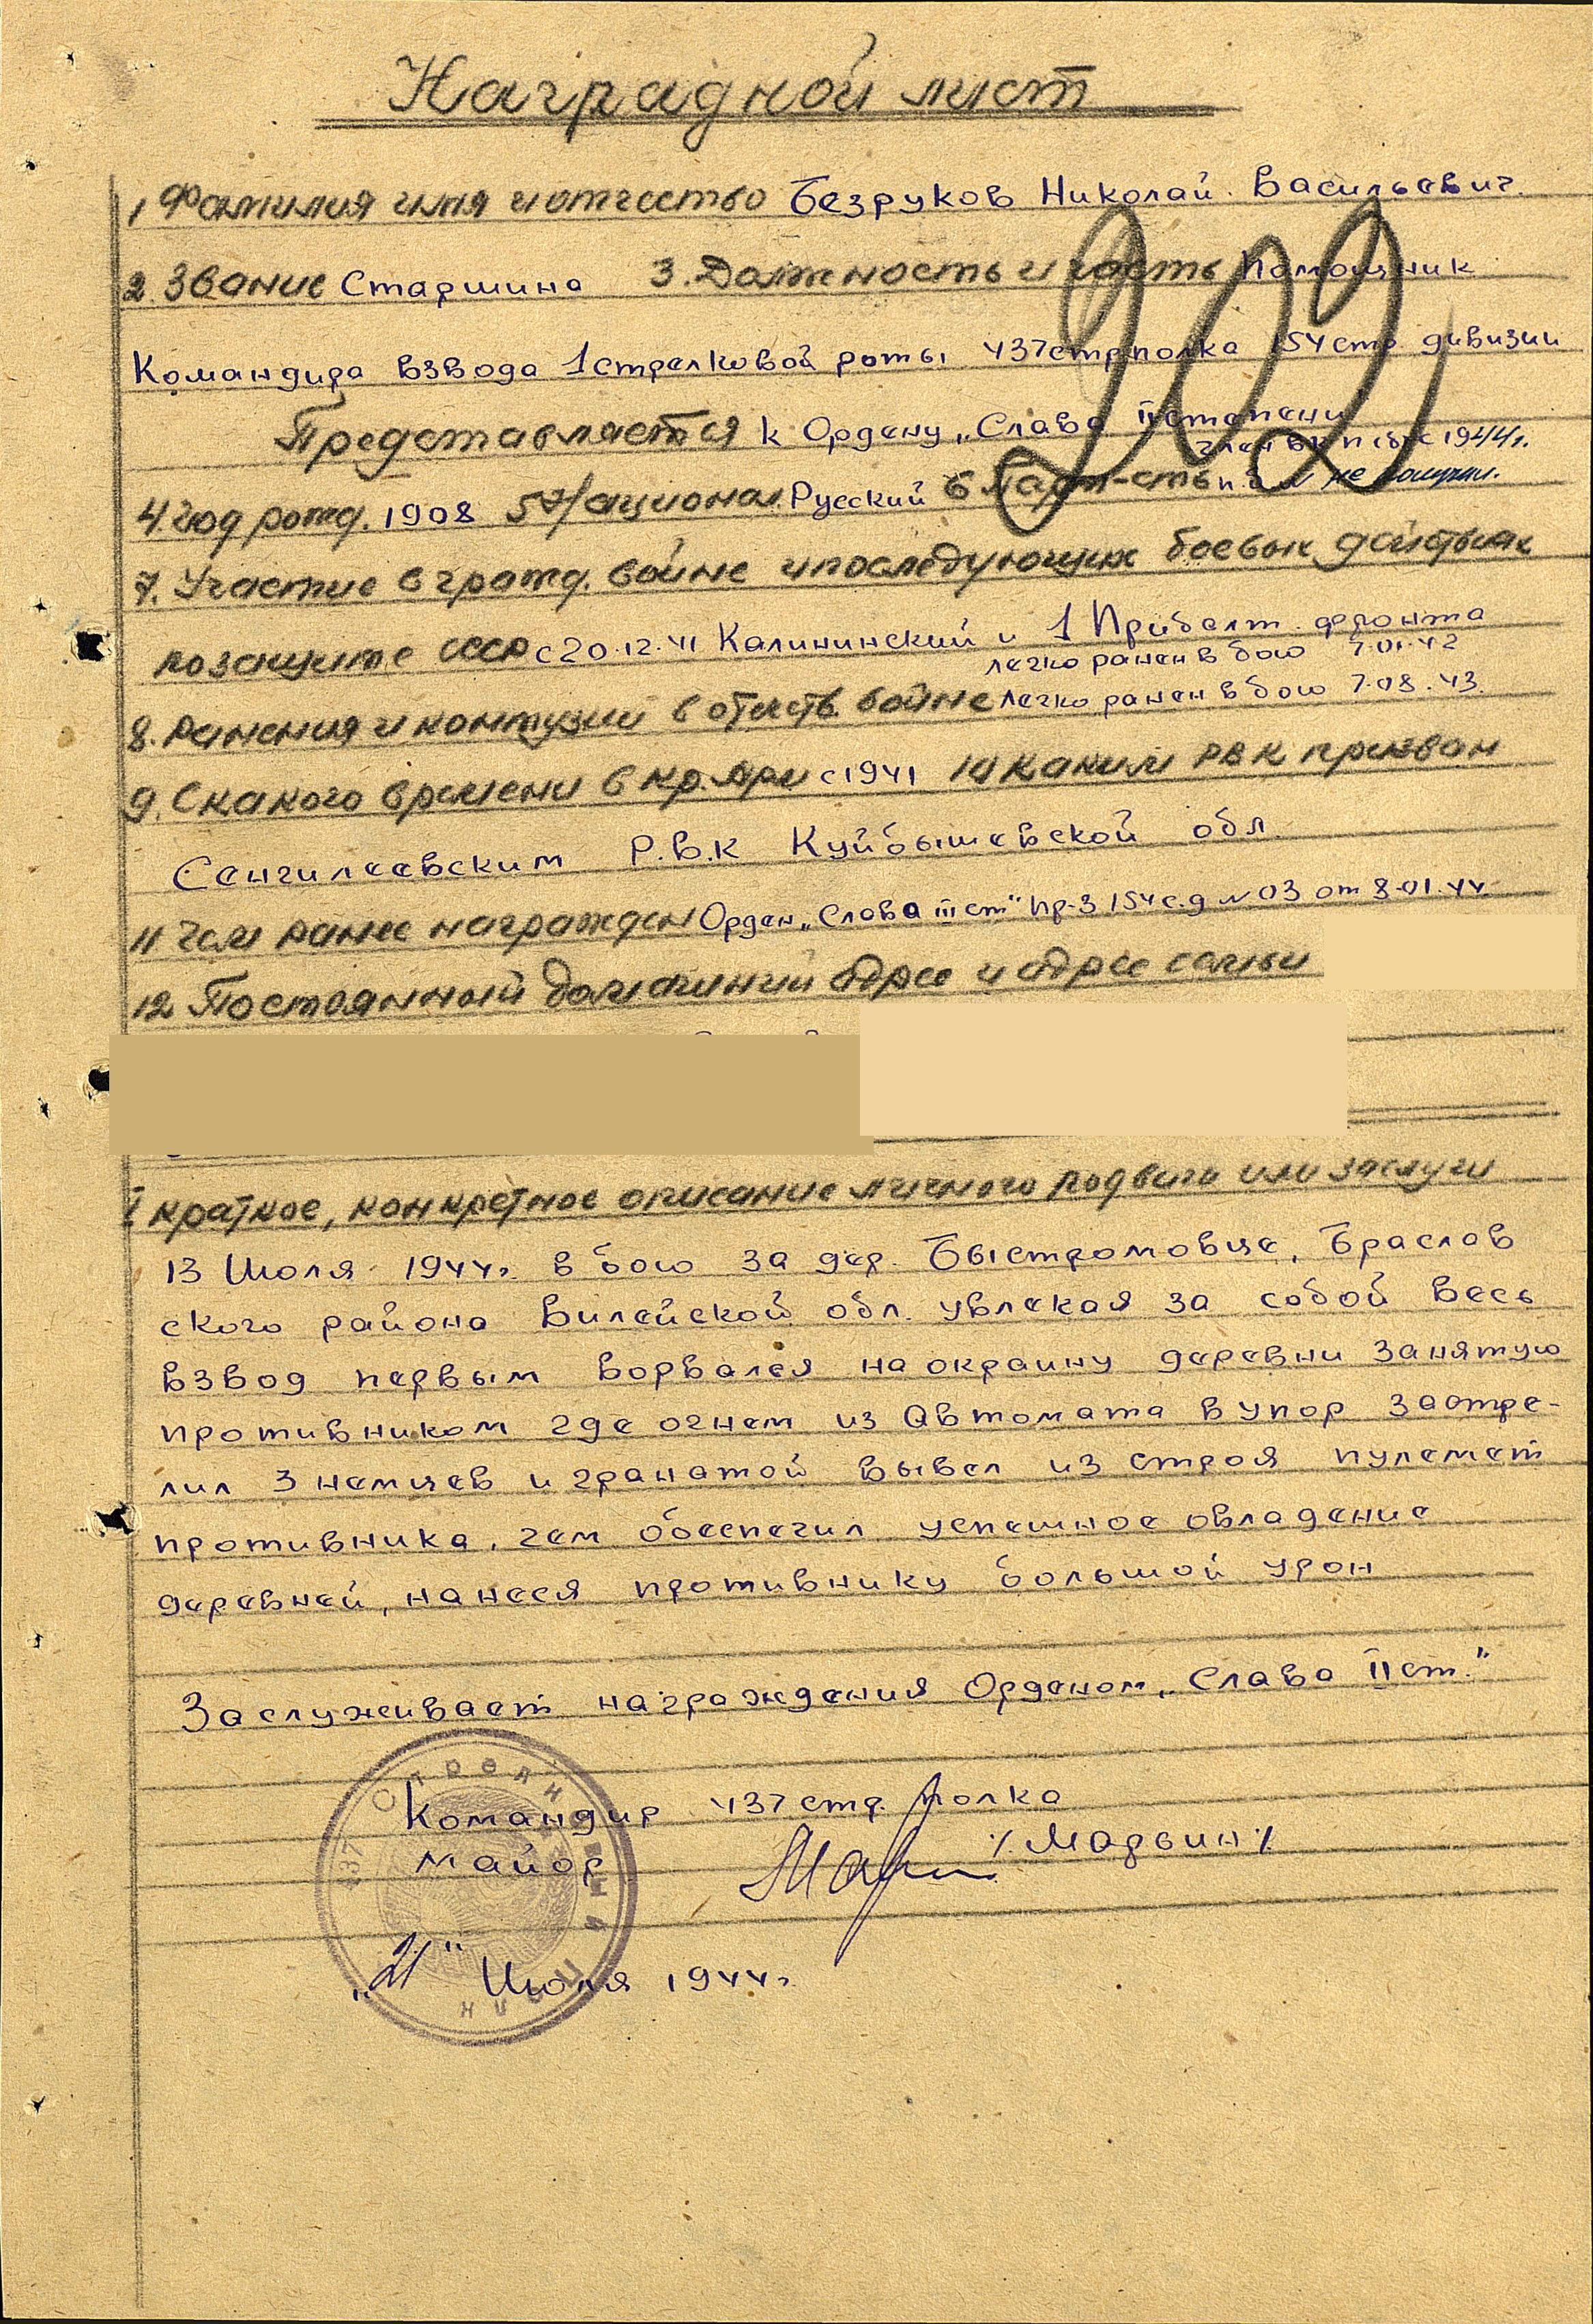 Наградной лист
1 Фамилия имя и отчество Безруков Николай Васильевич.
2. Звание Старшина 3. Должность и часть Помощник
Командира взвода 1 стрелковой роты 437 стр полка 154 стр. дивизии
Представляется к Ордену „Слава II степени"
член ВКП(б) с 1944 г.
4. год рожд. 1908 5 Национал. Русский 6 Парт-сть п.б. не получил.
202
7. Участие в гражд. войне и последующих боевых действиях
по защите СССР с 20.12.41 Калининский и 1 Прибалт. фронта
легко ранен в бою 7.01.42
8. Ранения и контузии в отечеств. войне легко ранен в бою 7.08.43.
9. С какого времени в кр. арм с 1941 10 каким РВК призван
Сенгилеевским Р.В.К Куйбышевской обл.
11 Чем ранее награжден Орден „Слава III ст" пр-з 154 с.д № 03 от 8.01.44
12 Постоянный домашний адрес и адрес семьи
I краткое, конкретное описание личного подвига или заслуги
13 Июля 1944 г. в бою за дер. Быстромовце, Браслав
ского района Вилейской обл. увлекая за собой весь
взвод первым ворвался на окраину деревни занятую
противником где огнем из Автомата в упор застре-
лил 3 немцев и гранатой вывел из строя пулемет
противника, чем обеспечил успешное овладение
деревней, нанеся противнику большой урон
Заслуживает награждения Орденом „Слава II ст."
Командир 437 стр. полка
Майор /Мадьин/
„21" Июля 1944 г.
437 Стрелковый Полк